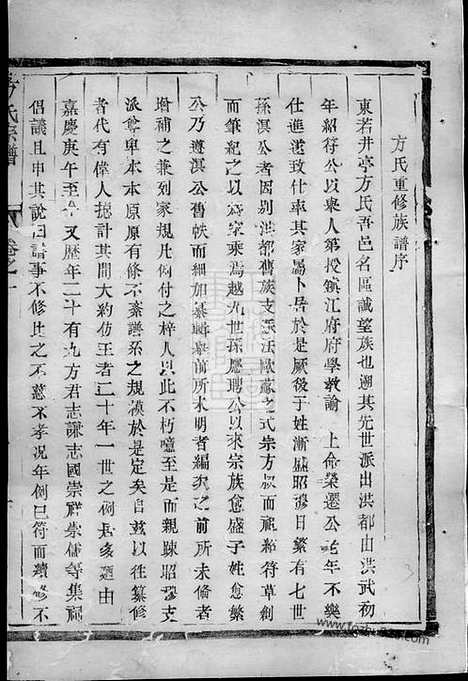 方氏重修族譜序
東若井亭方氏吾邑名區誠望族也溯其先世派出洪都由洪武初
年紹符公以東人第授鎮江府府學教諭 上命榮遷公年不樂
仕進遂致其家屬卜居於是厥後子姓漸盛昭穆日繁有七世
孫溟公因別洪都舊族支派法歐蘇之式宗方叔而祖紹符草創
而筆紀之以為家乘焉越九世孫應聘公以來宗族愈盛子姓愈繁
公乃遵溟公舊帙而細加纂輯舉前所未明者編次之前所未脩者
增補之彙列家規凡例付之梓人以此不朽噫至是而親疎昭穆支
派尊卑本本原原有條不紊譜系之規模於是定矣自茲以往纂修
者代有偉人總計其間大約仿王者三十年一世之例居多迺由
嘉慶庚午至今又歷年二十有九方君志謙志國崇祥崇儒等集祠
倡議且申其說曰譜事不修比之不慈不孝況年例已符而續修不
方氏宗譜
卷之一
www.fozhu920.com